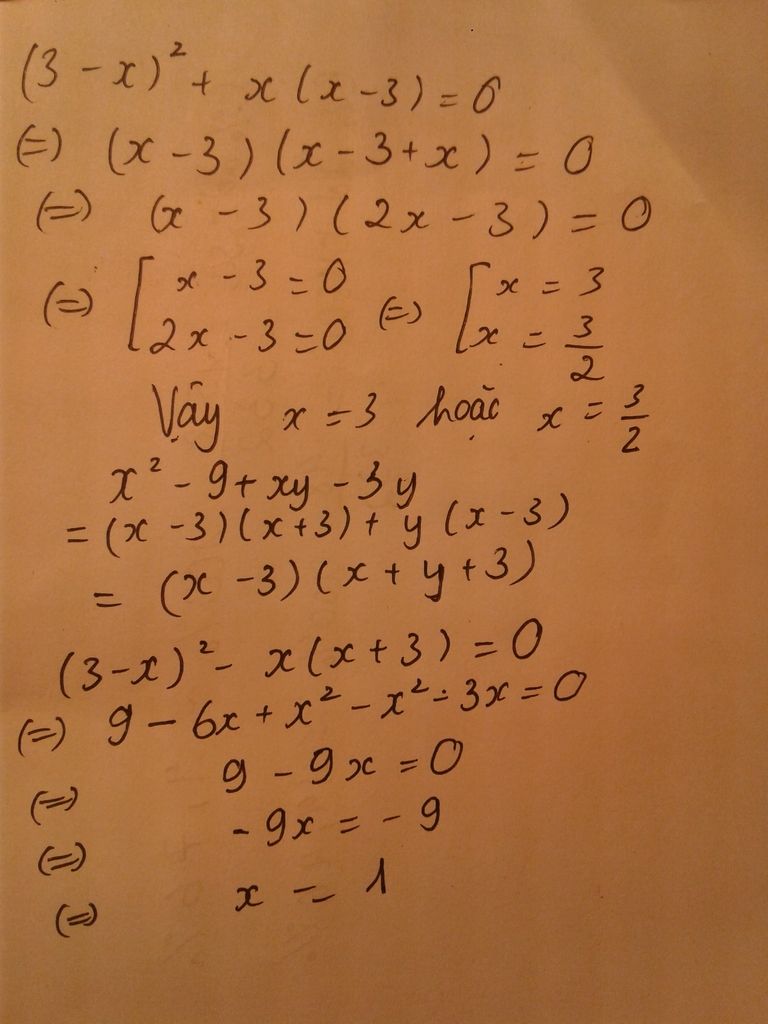 (3 - x)² + x(x - 3) = 0
(=) (x - 3)(x - 3 + x) = 0
(=) (x - 3)(2x - 3) = 0
(=) [ x - 3 = 0 (=) [ x = 3
2x - 3 = 0 x = 3/2
Vậy x = 3 hoặc x = 3/2
x² - 9 + xy - 3y
= (x - 3)(x + 3) + y(x - 3)
= (x - 3)(x + y + 3)
(3 - x)² - x(x + 3) = 0
(=) 9 - 6x + x² - x² - 3x = 0
(=) 9 - 9x = 0
(=) - 9x = - 9
(=) x = 1